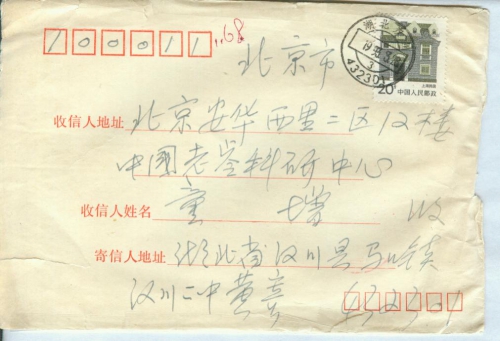 100011
68
湖北
432301
20分 中国人民邮政
北京市
收信人地址 北京安华西里二区12楼
中国老龄科研中心
收信人姓名 童增 收
寄信人地址 湖北省汉川县马口镇
汉川二中黄喜